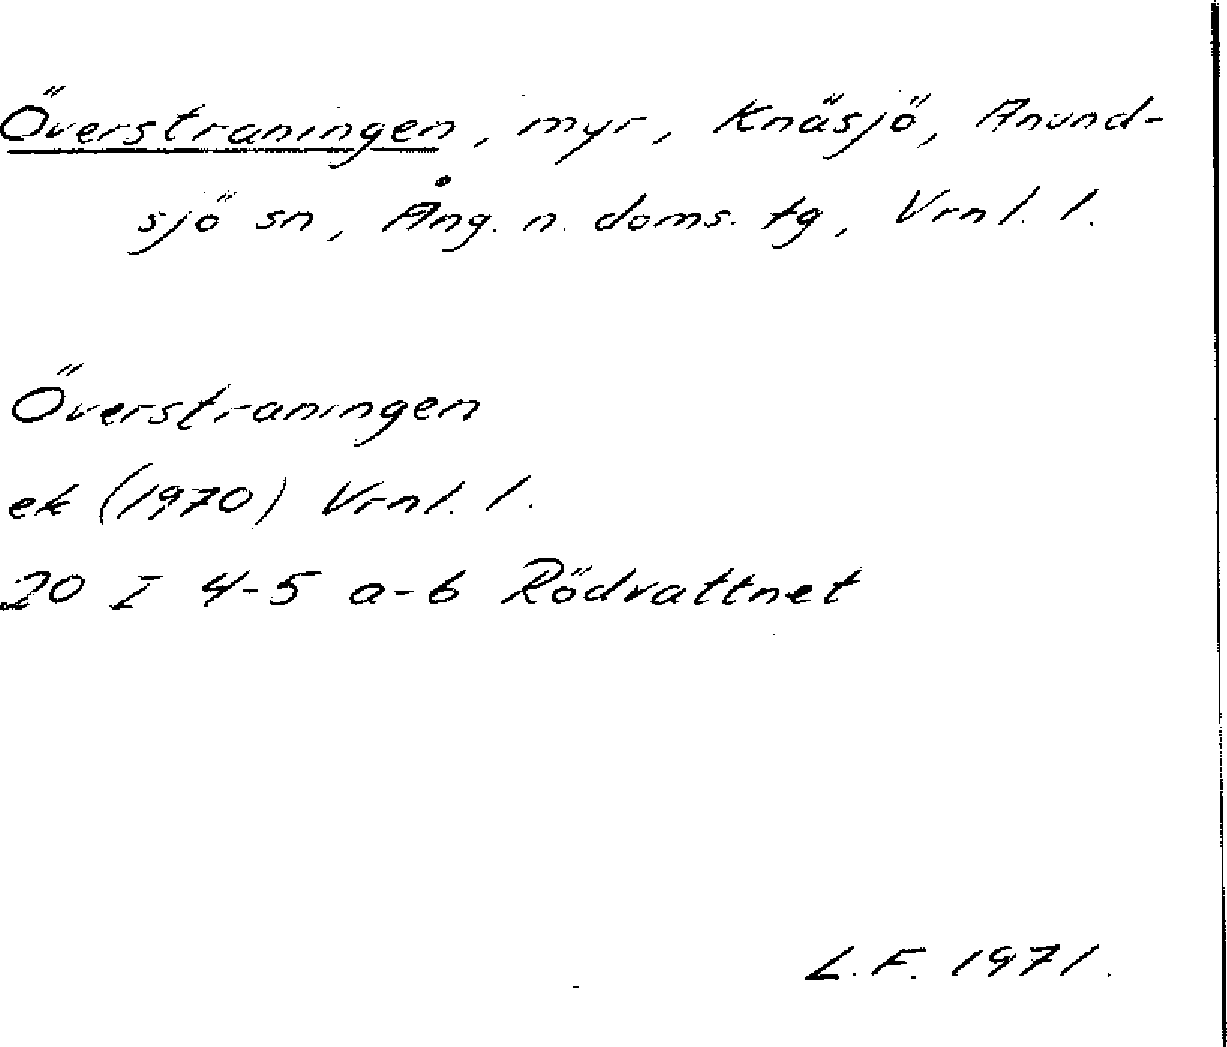 Överstraningen, myr, Knäsjö, Anund-
sjö sn, Ång. n. doms. tg, Vrnl. l.
Överstraningen
ek (1970) Vrnl. l.
20 I 4-5 a-b Rödvattnet
L.F. 1971.